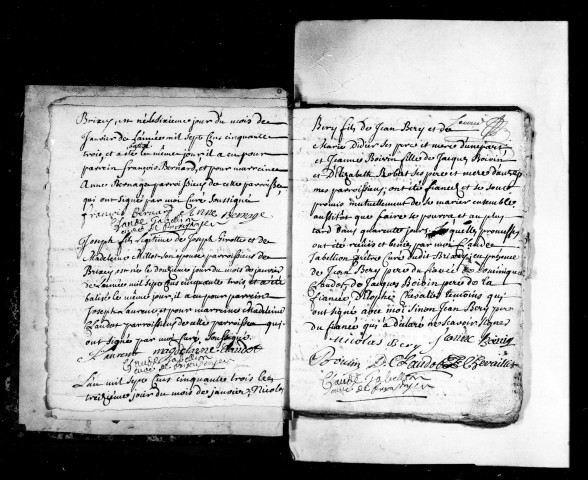 Brixey, est né le sixieme jour du mois de
Janvier de l'année mil sept cens cinquante
trois, et a été le même jour, il a eu pour
parrain françois Bernard, et pour marreine
Anne paroissiens de cette paroisse
qui ont signé par moi Curé soussigné
françois Bernard Anne
Claude Tabellion
curé de
Joseph fils legitime de Joseph et de
Madeleine Millot son epouse paroissiens de
Brixey est né le douzieme jour du mois de janvier
de l'année mil sept cens cinquante trois et a été
batisé le même jour, il a eu pour parrein
Joseph Laurent, et pour marreine Madeleine
Claudot paroissiens de cette paroisse qui
ont signé par moi Curé soussigné
J Laurent magdelenne Claudot
Claude Tabellion
curé de
L'an mil sept cens cinquante trois le
treizieme jour du mois de janvier, Nicolas
Bery fils de Jean Bery et de
Marie Didier ses pere et mere d'une part,
et Jeanne Boivin fille de Jacques Boivin
et d'Elizabeth Robert ses pere et mere d'autre
mes paroissiens, ont été fiancés et se sont
promis mutuellement de se marier ensemble
aussitôt que faire se pourra et au plus
tard dans quarante jours, lesquelles promesses
ont été reçuës et par moi Claude
Tabellion Prêtre Curé dudit Brixey, en presence
de Jean Bery pere du fiancé, de Dominique
Claudot, de Jacques Boivin pere de la
fiancée, Chevalier temoins qui
ont signé avec moi sinon Jean Bery pere
du fiancé qui a declaré ne scavoir signer
nicolas Bery Janne Boivin
Boivin D Claudot Chevallier
Claude Tabellion
curé de